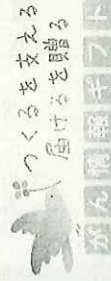 つくるを支える
届けるを贈る
がん情報ギフト